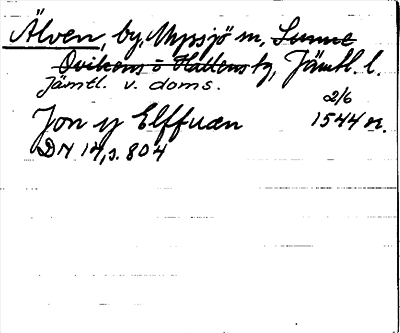 Älven, by, Myssjö sn, Sunne
Ovikens o Hallens tg, Jämtl. l.
Jämtl. v. doms.
2/6
Jon y Elffuan 1544 n.
DN 14, s. 804